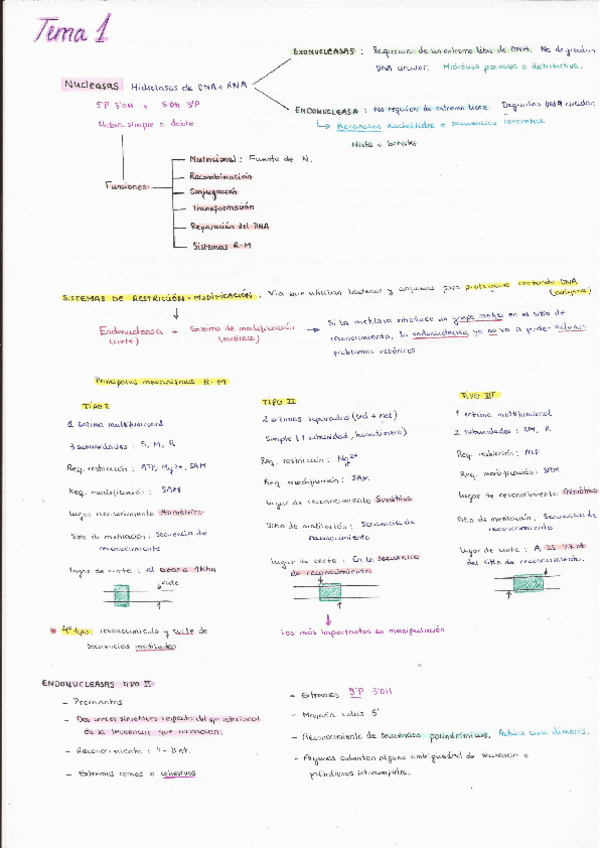 Tema 1
EXONUCLEASAS : Requieren de un extremo libre de DNA. No degradan
DNA circular.
Nucleasas Hidrolasas de DNA o RNA
5'P 3'OH 5'OH 3'P
Hebra simple o doble
ENDONUCLEASA : No requieren de extremo libre. Degradan DNA circular.
Reconocen nucleótidos o secuencias
Funciones
Nutricional : Fuente de N.
Recombinación
Conjugación
Transformación
Reparación del DNA
Sistemas R-M
SISTEMAS DE RESTRICCIÓN-MODIFICACIÓN : Vía que utilizan bacterias y arqueas para protegerse DNA
Endonucleasa + Enzima de modificación
(corte) (metilasa)
Si la metilasa introduce un grupo metilo en el sitio de
reconocimiento, la endonucleasa ya no va a poder actuar:
Principales mecanismos R-M
TIPO I
1 Enzima multifuncional
3 subunidades : S, M, R
Req. restricción : ATP, Mg2+, SAM
Req. modificación : SAM
Lugar reconocimiento Asimétrico
Sitio de metilación : Secuencia de
reconocimiento
Lugar de corte : al azar
corte
4º tipo reconocimiento y corte de
secuencias metiladas
TIPO II
2 enzimas separadas (end + met)
Simple (1 subunidad, homodímero)
Req. restricción : Mg2+
Req. modificación : SAM
Lugar de reconocimiento Simétrico
Sitio de metilación : Secuencia de
reconocimiento
Lugar de corte : En la secuencia
de reconocimiento
Los más importantes en manipulación
TIPO III
1 enzima multifuncional
2 subunidades : SM, R
Req. restricción : ATP
Req. modificación : SAM
Lugar de reconocimiento Asimétrico
Sitio de metilación. Secuencia de
reconocimiento
Lugar de corte : A
del sitio de reconocimiento.
ENDONUCLEASAS TIPO II
- Dos cortes simétricos respecto del eje rotacional
de la secuencia que reconocen.
- Reconocimiento : 4-8 nt.
- Extremos romos o cohesivos
- Extremos 5'P 3'OH
- Mayoría salen 5'
- Reconocimiento de secuencias palindrómicas. Actúan como dímeros.
- Algunas admiten alguna ambigüedad de secuencia o
palíndromes interrumpidos.